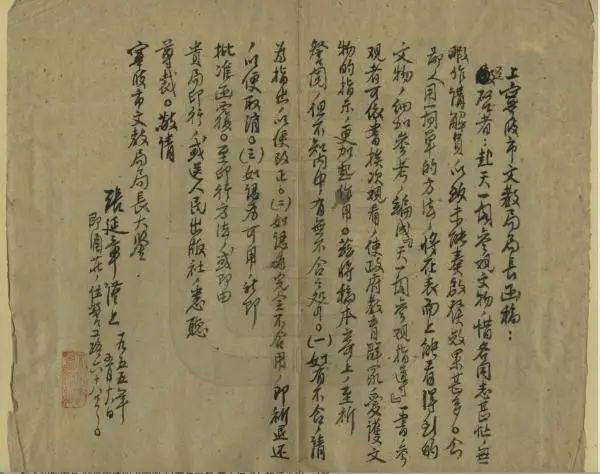 上寧波市文教局局長函稿：
逕啓者：赴天一閣參觀文物，惜各同志甚忙，無
暇作講解員，以致未能奏啟發效果甚多。今
前人用一簡單的方法，將在表面上能看得到的
文物，細加參考，編成『天一閣參觀指導』一書，參
觀者可依書挨次觀看，使政府教育群眾，愛護文
物的指示，更加起作用。茲將稿本寄上，至祈
詧閱，但不知內中有無不合之處。(一)如有不合，請
為指出，以便改正。(二)如認為完全不合用，即祈退还
，以便取消。(三)如認為可用，祈即
批准函覆。至印行方法，或即由
貴局印行，或送人民出版社，悉聽
尊裁。敬請
寧波市文教局局長大鑒
張延章謹上 一九五五年
五月 日
即圃花，住 路六十八号。